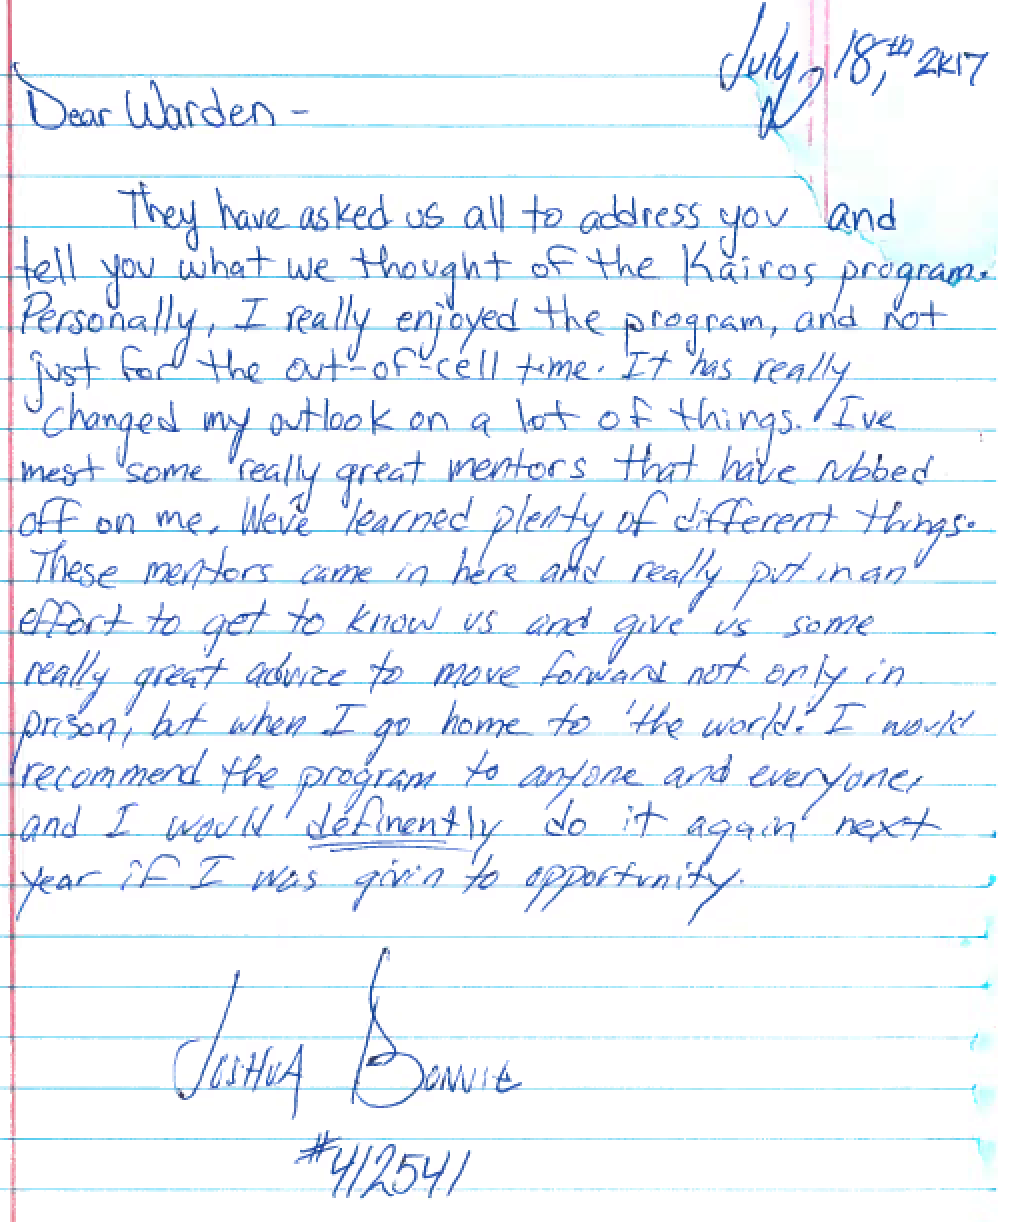 July 18,th 2K17
Dear Warden -
They have asked us all to address you and
tell you what we thought of the Kairos program.
Personally, I really enjoyed the program, and not
just for the out-of-cell time. It has really
changed my outlook on a lot of things. I've
mest some really great mentors that have rubbed
off on me. We've learned plenty of different things.
These mentors came in here and really put in an
effort to get to know us and give us some
really great advice to move forward not only in
prison, but when I go home to 'the world.' I would
recommend the program to anyone and everyone,
and I would definently do it again next
year if I was givin to opportunity.
Joshua Bonnie
#412541